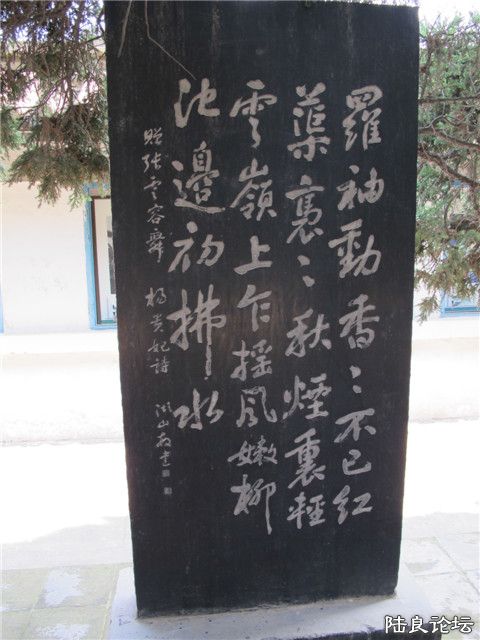 羅袖動香〻不已紅
蕖裊〻秋煙裏輕
雲嶺上乍摇風嫩柳
池邊初拂水
贈张雲容舞 楊贵妃詩
陆良论坛